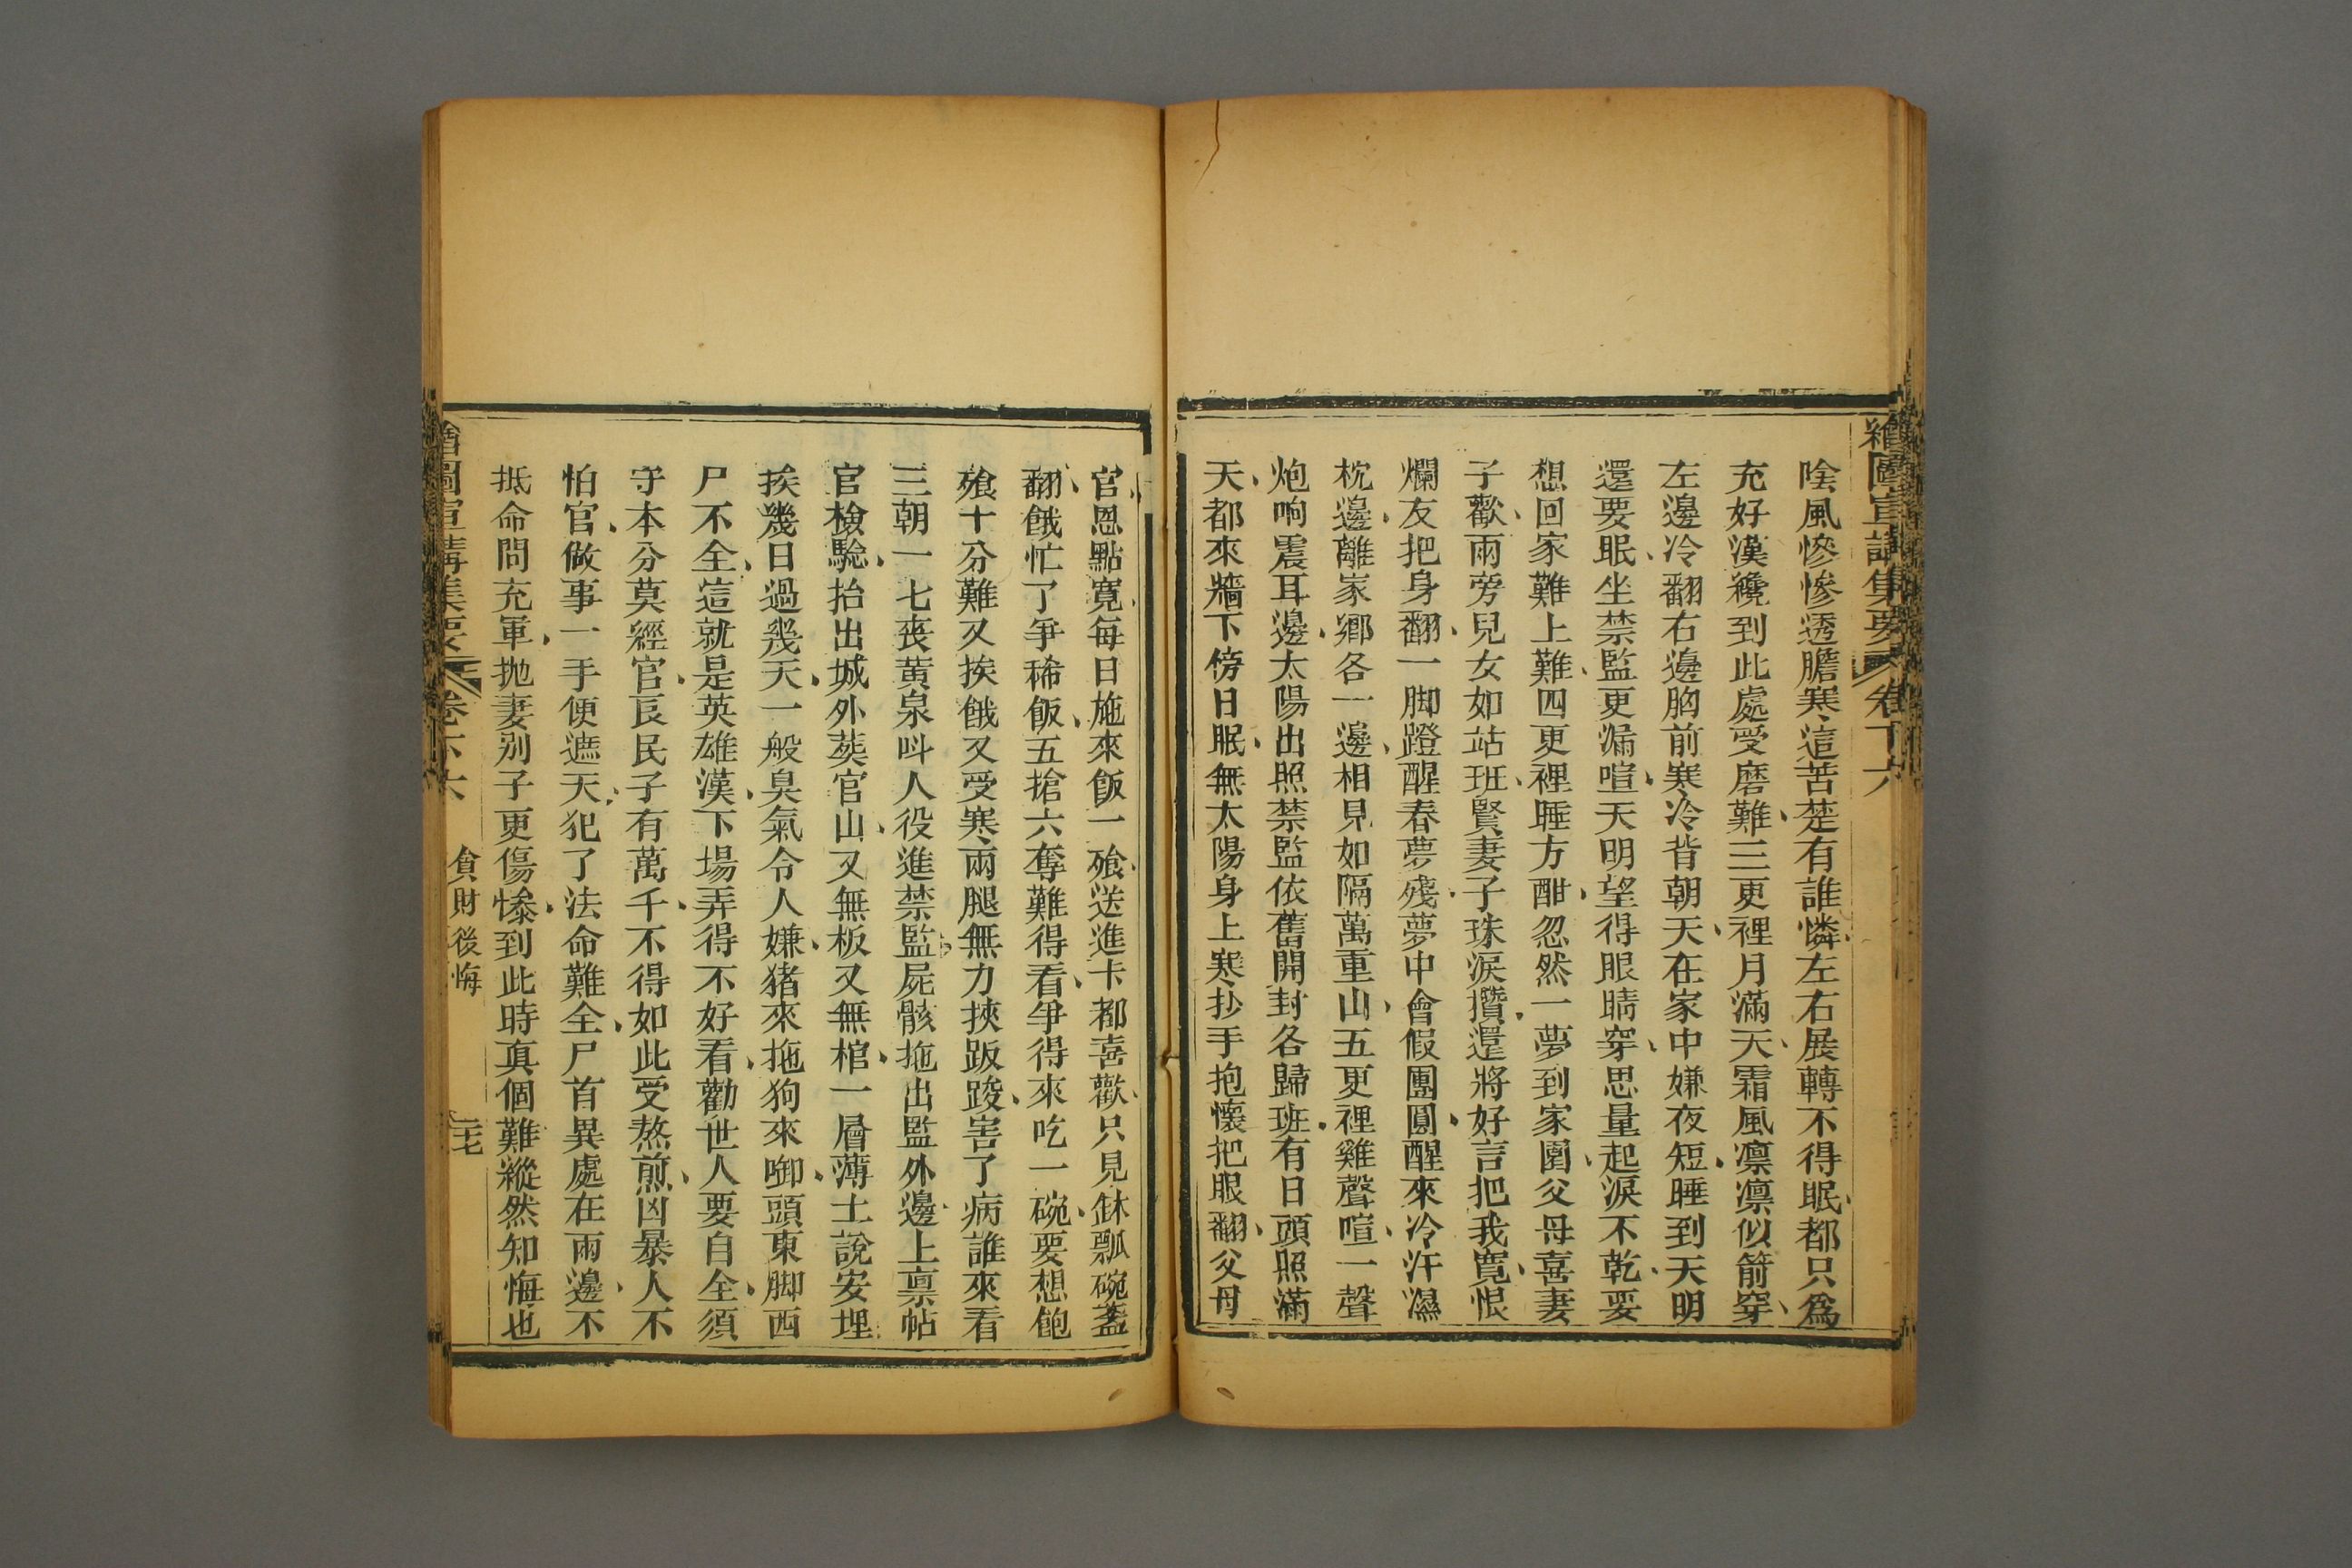 繪圖宣講集要 卷下六
陰風慘慘透膽寒、這苦楚有誰憐、左右展轉不得眠、都只爲
充好漢纔到此處受磨難、三更裡月滿天、霜風凛凛似箭穿、
左邊冷翻右邊胸前寒冷背朝天、在家中嫌夜短、睡到天明
還要眠、坐禁監更漏喧、天明望得眼睛穿、思量起淚不乾、要
想回家難上難、四更裡睡方酣、忽然一夢到家園、父母喜妻
子歡、兩旁兒女如站班、賢妻子珠淚攢、還將好言把我寬、恨
爛友把身翻、一脚蹬醒春夢殘、夢中會假團圓、醒來冷汗濕
枕邊、離家鄉各一邊、相見如隔萬重山、五更裡雞聲喧、一聲
炮响震耳邊、太陽出照禁監依舊開封各歸班、有日頭照滿
天、都來牆下傍日眠、無太陽身上寒抄手抱懷把眼翻、父母
官恩點寬、每日施來飯一飧、送進卡都喜歡、只見鉢瓢碗盞
翻、餓忙了爭稀飯、五搶六奪難得看、爭得來吃一碗、要想飽
飧十分難、又挨餓又受寒、兩腿無力挾跋踜、害了病誰來看
三朝一七喪黄泉叫人役進禁監、屍骸拖出監外邊、上禀帖
官檢驗、抬出城外葬官山、又無板又無棺、一層薄土說安埋、
挨幾日過幾天、一般臭氣令人嫌、猪來拖狗來啣、頭東脚西
尸不全、這就是英雄漢、下場弄得不好看、勸世人要自全、須
守本分莫經官、良民子有萬千、不得如此受熬煎、凶暴人不
怕官、做事一手便遮天、犯了法命難全、尸首異處在兩邊、不
抵命問充軍、抛妻别子更傷慘、到此時真個難縱然知悔也
繪圖宣講集要 卷下六 貪財後悔 二七